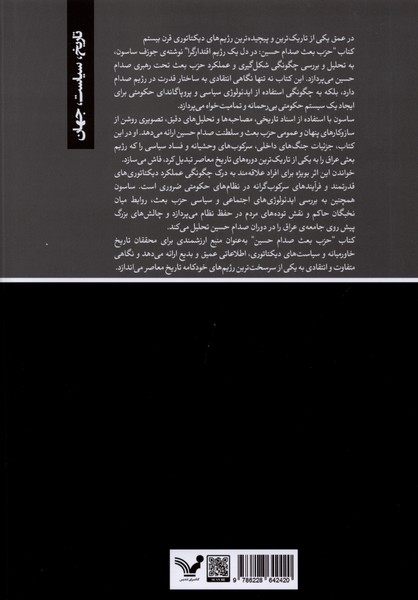 تاریخ، سیاست، جهان
در عمق یکی از تاریک‌ترین و پیچیده‌ترین رژیم‌های دیکتاتوری قرن بیستم
کتاب "حزب بعث صدام حسین: در دل یک رژیم اقتدارگرا" نوشته‌ی جوزف ساسون،
به تحلیل و بررسی چگونگی شکل‌گیری و عملکرد حزب بعث تحت رهبری صدام
حسین می‌پردازد. این کتاب نه تنها نگاهی انتقادی به ساختار قدرت در رژیم صدام
دارد، بلکه به چگونگی استفاده از ایدئولوژی سیاسی و پروپاگاندای حکومتی برای
ایجاد یک سیستم حکومتی بی‌رحمانه و تمامیت‌خواه می‌پردازد.
ساسون با استفاده از اسناد تاریخی، مصاحبه‌ها و تحلیل‌های دقیق، تصویری روشن از
سازوکارهای پنهان و عمومی حزب بعث و سلطنت صدام حسین ارائه می‌دهد. او در این
کتاب، جزئیات جنگ‌های داخلی، سرکوب‌های وحشیانه و فساد سیاسی را که رژیم
بعثی عراق را به یکی از تاریک‌ترین دوره‌های تاریخ معاصر تبدیل کرد، فاش می‌سازد.
خواندن این اثر بویژه برای افراد علاقه‌مند به درک چگونگی عملکرد دیکتاتوری‌های
قدرتمند و فرآیندهای سرکوب‌گرانه در نظام‌های حکومتی ضروری است. ساسون
همچنین به بررسی ایدئولوژی‌های اجتماعی و سیاسی حزب بعث، روابط میان
نخبگان حاکم و نقش توده‌های مردم در حفظ نظام می‌پردازد و چالش‌های بزرگ
پیش روی جامعه‌ی عراق را در دوران صدام حسین تحلیل می‌کند.
کتاب "حزب بعث صدام حسین" به‌عنوان منبع ارزشمندی برای محققان تاریخ
خاورمیانه و سیاست‌های دیکتاتوری، اطلاعاتی عمیق و بدیع ارائه می‌دهد و نگاهی
متفاوت و انتقادی به یکی از سرسخت‌ترین رژیم‌های خودکامه تاریخ معاصر می‌اندازد.
9 786228 642420